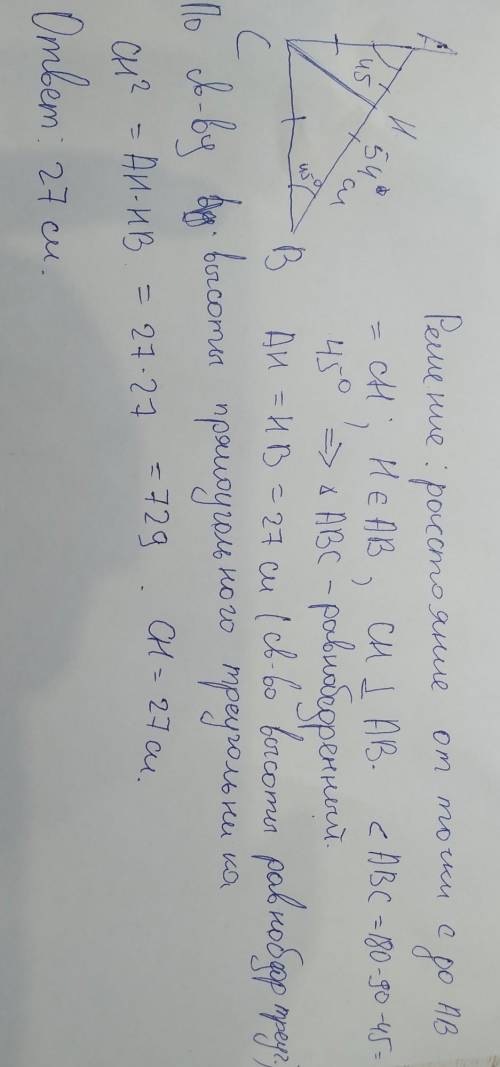 Решение: расстояние от точки С до АВ
= СН; Н ∈ АВ, СН ⊥ АВ. < АВС = 180-90-45 =
45° => △ АВС - равнобедренный.
АН = НВ = 27 см (св-во высоты равнобедр треуг.)
А
45
Н
54 см
45°
С
В
По св-ву высоты прямоугольного треугольника
СН² = АН·НВ = 27·27 = 729. СН = 27 см.
Ответ: 27 см.